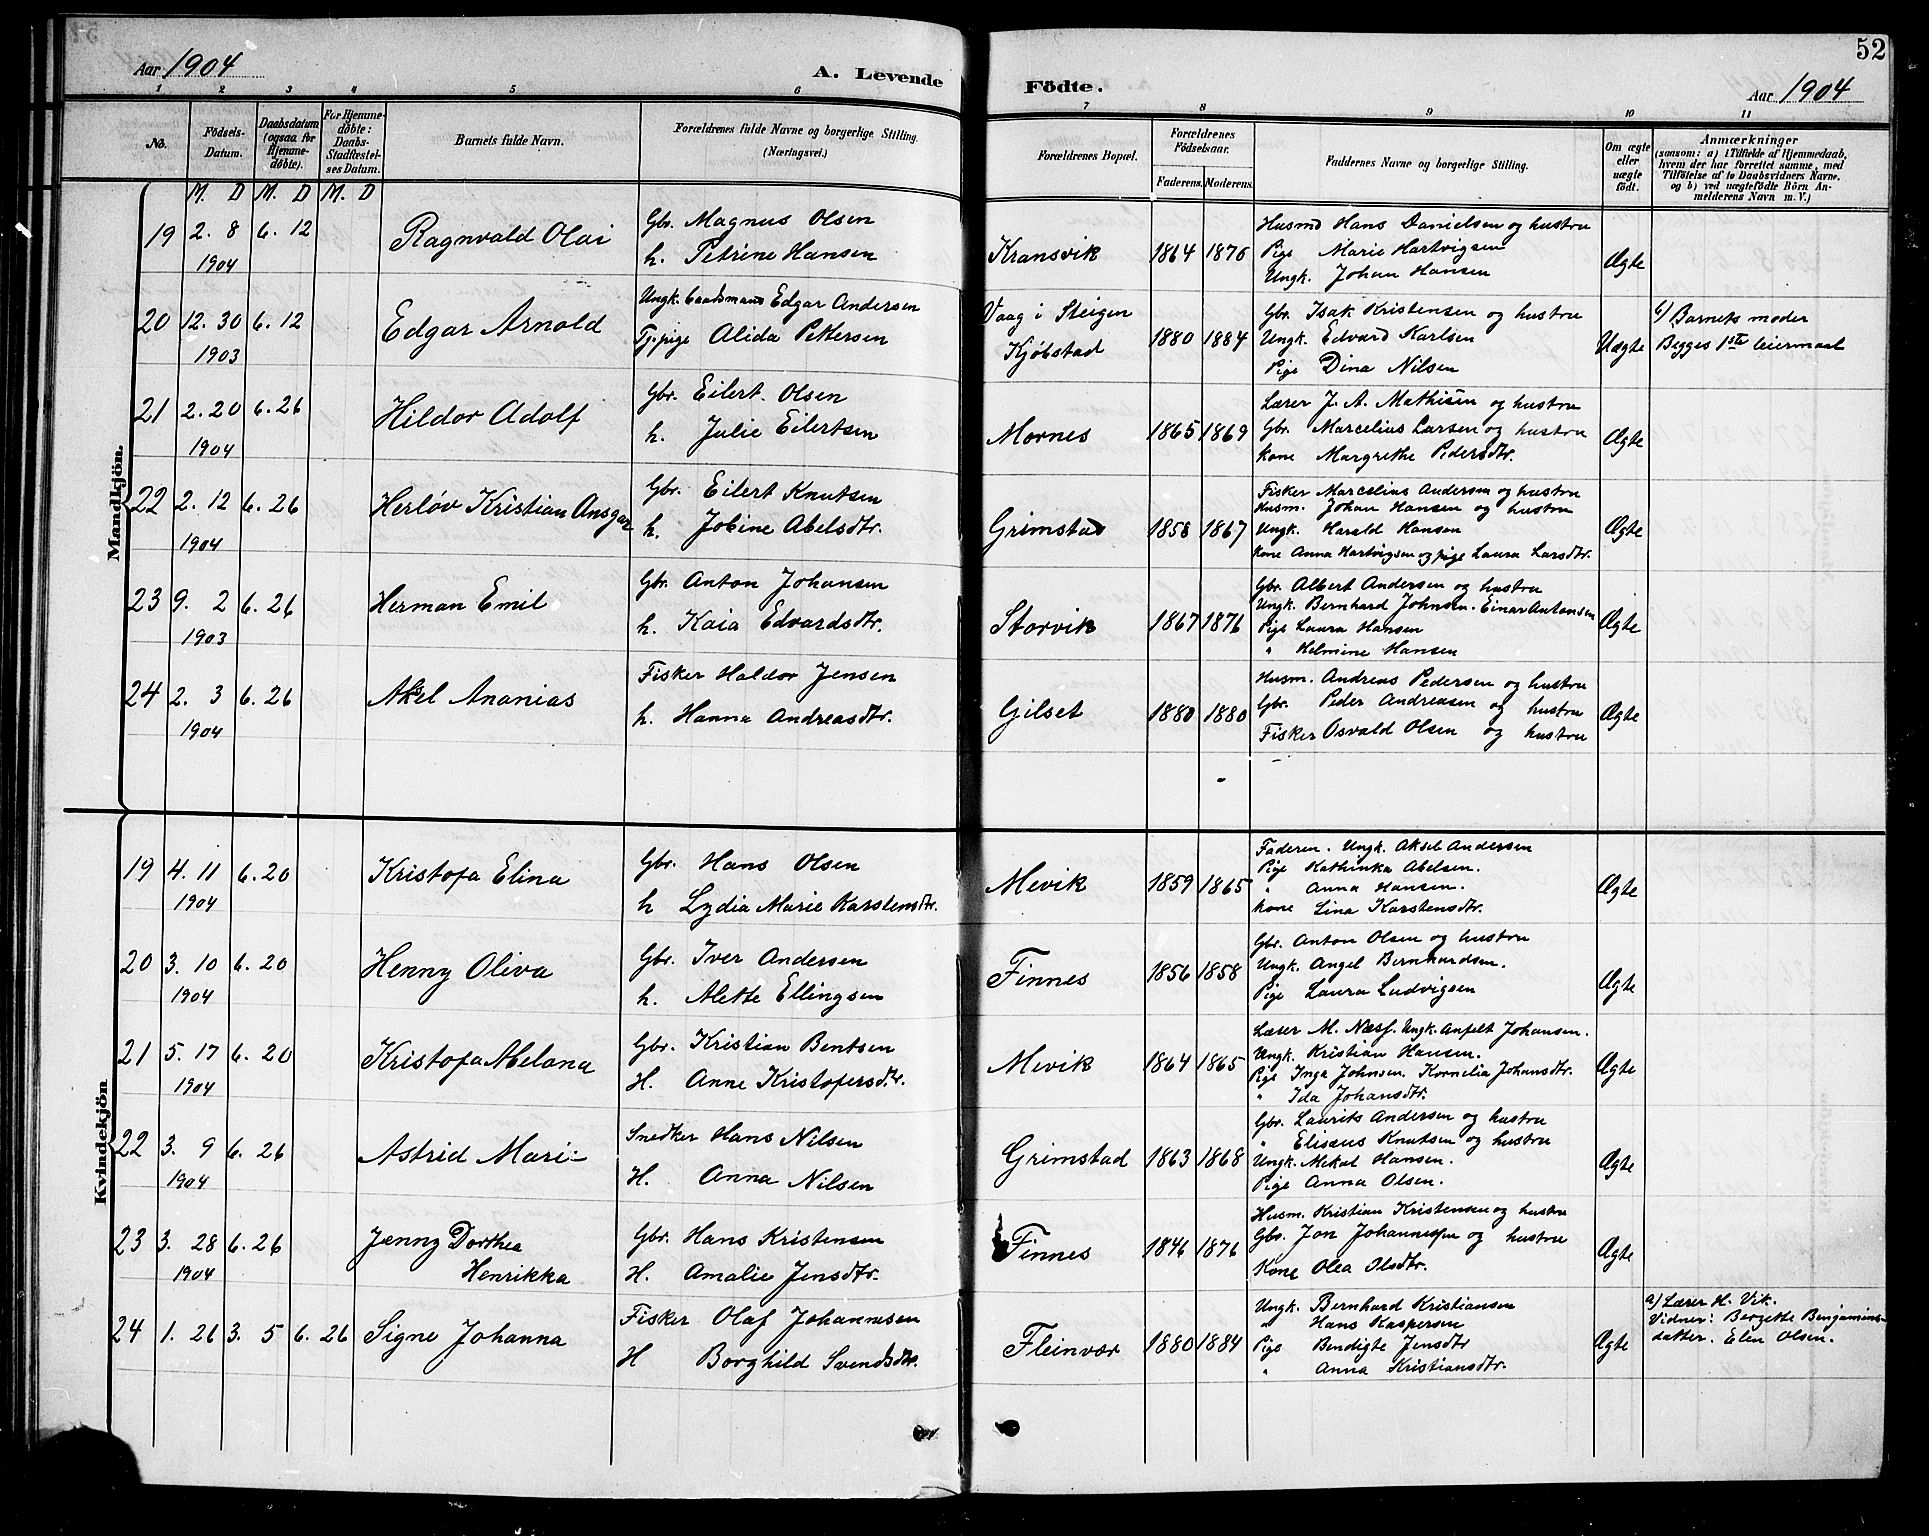 Aar 1904
A. Levende Födte.
Aar 1904
52
1 2 3 4 5 6 7 8 9 10 11
No.
Födsels-Datum.
Daabsdatum (ogsaa for Hjemme-döbte).
For Hjemme-döbte: Daabs-Stadfæstel-ses Datum.
Barnets fulde Navn.
Forældrenes fulde Navne og borgerlige Stilling.
(Næringsvei.)
Forældrenes Bopæl.
Forældrenes Födselsaar.
Faderens. Moderens.
Faddernes Navne og borgerlige Stilling.
Om ægte eller uægte födt.
Anmærkninger
(saasom: a) i Tilfælde af Hjemmedaab,
hvem der har forrettet samme, med
Tilföielse af to Daabsvidners Navne,
og b) ved uægtefödte Börn An-
melderens Navn m. V.)
M. D M. D M. D
Mandkjön.
19 2. 8 6. 12 Ragnvald Olai Gbr. Magnus Olsen Kransvik 1864 1876 Husmd Hans Danielsen og hustru Ægte
1904 h. Petrine Hansen Pige Marie Hartvigsen
Ungk. Johan Hansen
20 12. 30 6. 12 Edgar Arnold Ungk. baadsmand Edgar Andersen Vaag i Steigen 1880 1884 Gbr. Isak Kristensen og hustru Uægte Barnets moder
1903 Tj.pige Alida Pettersen Kjøbstad Ungk. Edvard Karlsen Begges 1ste leiermaal
Pige Dina Nilsen
21 2. 20 6. 26 Hildor Adolf Gbr. Eilert Olsen Mornes 1865 1869 Lærer J. A. Mathisen og hustru Ægte
1904 h. Julie Eilertsen Gbr. Marcelius Larsen og hustru
Kone Margrethe Pedersdtr.
22 2. 12 6. 26 Herløv Kristian Ansgar Gbr. Eilert Knutsen Grimstad 1858 1867 Fisker Marcelius Andersen og hustru Ægte
1904 h. Jobine Abelsdtr. Husm. Johan Hansen og hustru
Ungk. Harald Hansen
Kone Anna Hartvigsen og pige Laura Larsdtr.
23 9. 2 6. 26 Herman Emil Gbr. Anton Johansen Storvik 1867 1876 Gbr. Albert Andersen og hustru Ægte
1903 h. Kaia Edvardsdtr. Ungk. Bernhard Johnsen. Einar Antonsen
Pige Laura Hansen
" Helmine Hansen
24 2. 3 6. 26 Aksel Ananias Fisker Haldor Jensen Gilset 1880 1880 Husm. Andreas Pedersen og hustru Ægte
1904 h. Hanna Andreasdtr. Gbr. Peder Andreasen og hustru
Fisker Osvald Olsen og hustru
Kvindekjön
19 4. 11 6. 20 Kristofa Elina Gbr. Hans Olsen Mevik 1859 1865 Faderen. Ungk. Aksel Andersen Ægte
1904 h Lydia Marie Karstensdtr. Pige Kathinka Abelsen
" Anna Hansen.
Kone Lina Karstensdtr.
20 3. 10 6. 20 Henny Oliva Gbr. Iver Andersen Finnes 1856 1858 Gbr. Anton Olsen og hustru Ægte
1904 h. Alette Ellingsen Ungk. Angel Bernhardsen.
Pige Laura Ludvigsen
21 5. 17 6. 20 Kristofa Melana Gbr. Kristian Bentsen Mevik 1864 1865 Læser M. Næss. Ungk. Anfelt Johansen. Ægte
1904 H. Anne Kristofersdtr. Ungk. Kristian Hansen.
Pige Inga Johnsen. Kornelia Johansdtr.
" Ida Johansdtr.
22 3. 9 6. 26 Astrid Marie Snedker Hans Nilsen Grimstad 1863 1868 Gbr. Laurits Andersen og hustru Ægte
1904 H. Anna Nilsen " Elisæus Knutsen og hustru
Ungk. Mekal Hansen.
Pige Anna Olsen.
23 3. 28 6. 26 Jenny Dorthea Gbr. Hans Kristensen Finnes 1846 1876 Husm. Kristian Kristensen og hustru Ægte
1904 Henrikka H. Amalie Jensdtr. Gbr. Jon Johannessen og hustru
Kone Olea Olsdtr.
24 1. 26 3. 5 6. 26 Signe Johanna Fisker Olaf Johannesen Fleinvær 1880 1884 Ungk. Bernhard Kristiansen Ægte a) Lærer H. Vik.
H Borghild Svendsdtr. " Hans Kaspersen Vidner: Bergette Benjamins-
Pige Bendigte Jensdtr datter. Elen Olsen.
" Anna Kristiansdtr.